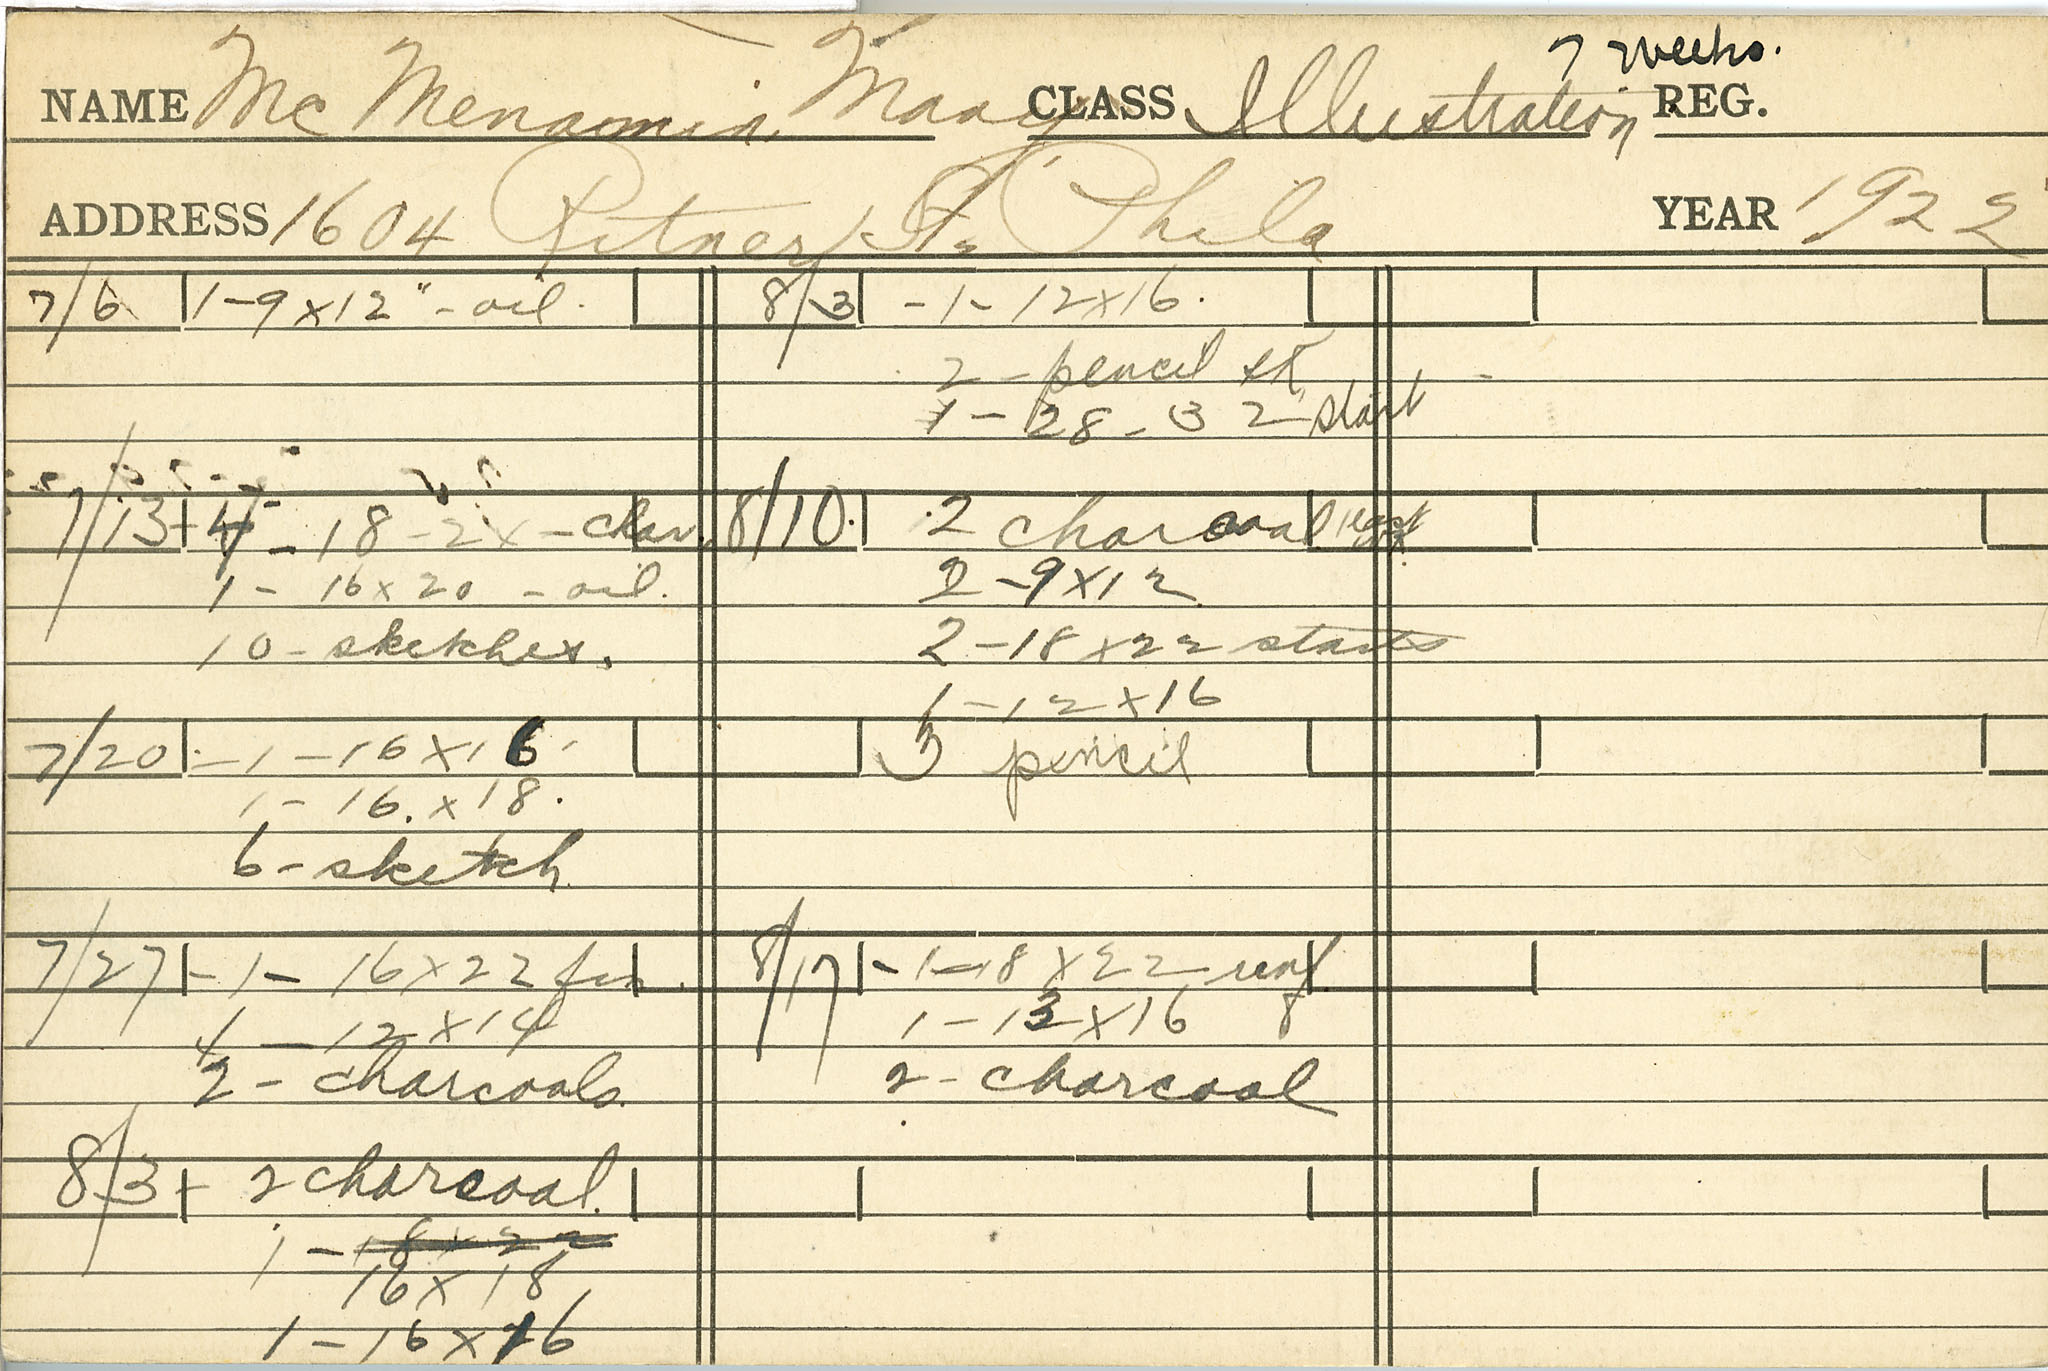 7 weeks.
NAME Mc Menamin, Mary CLASS Illustration REG.
ADDRESS 1604 Ritner St. Phila YEAR 1922
7/6 1-9x12" - oil.
7/13 - 4 - 18-2x - char.
1 - 16x20 - oil.
10 - sketches.
7/20 - 1 - 16x16.
1 - 16.x18.
6 - sketch
7/27 - 1 - 16x22 fin.
1 - 12x14
2 - charcoals
8/3 - 2 charcoal.
1 - 18x22
16x18
1 - 16x16
8/3 - 1 - 12x16.
2 - pencil sk
1 - 28 - 32 start
8/10. 2 charcoal
2 - 9x12
2 - 18x22 starts
1 - 12x16
3 pencil
8/17 - 1 - 18x22
1 - 12x16
2 - charcoal